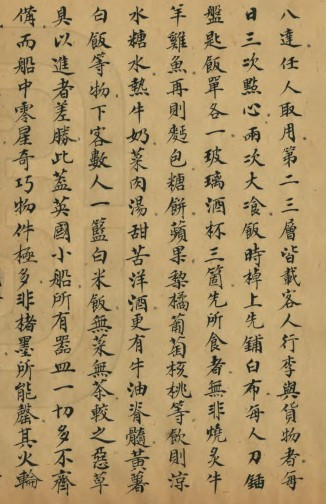 八達任人取用第二三層皆載客人行李與貨物者每
日三次點心兩次大飡飯時棹上先鋪白布每人刀錨
盤匙飯單各一玻璃酒杯三箇先所食者無非燒炙牛
羊雞魚再則麪包糖餅蘋果梨橘葡萄核桃等飲則涼
水糖水熱牛奶菜肉湯甜苦洋酒更有牛油脊髓黃薯
白飯等物下客數人一籃白米飯無菜無茶較之惡草
具以進者差勝此蓋英國小船所有器皿一切多不齊
備而船中零星奇巧物件極多非楮墨所能罄其火輪